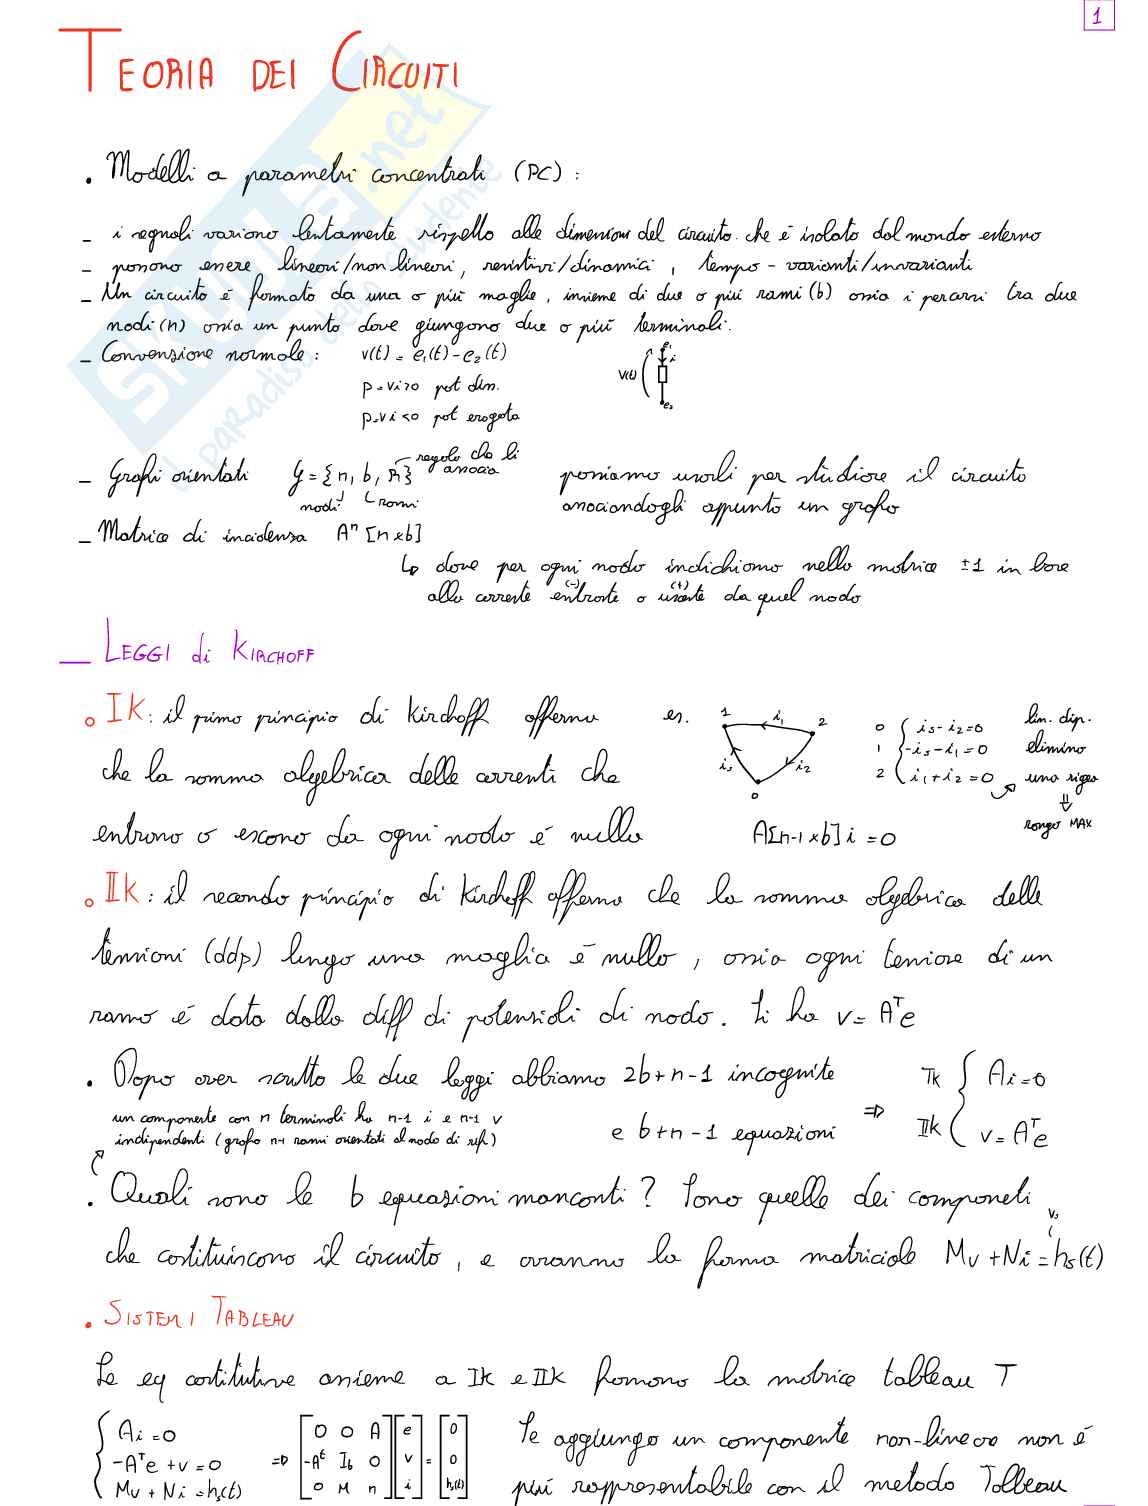 1
TEORIA DEI CIRCUITI
. Modelli a parametri concentrati (PC) :
- i segnali variano lentamente rispetto alle dimensioni del circuito che è isolato dal mondo esterno
- possono essere lineari/non lineari, resistivi/dinamici, tempo-varianti/invarianti
- Un circuito è formato da una o più maglie, insieme di due o più rami (b) ossia i percorsi tra due
nodi (n) ossia un punto dove giungono due o più terminali.
- Convenzione normale : v(t) = e₁(t) - e₂(t)
p=vi>0 pot diss.
p=vi<0 pot erogata
v(t) e₁ i e₂
- Grafi orientati G = {n, b, R} regola che li associa
nodi rami
possiamo usarli per studiare il circuito
associandogli appunto un grafo
- Matrice di incidenza Aⁿ [n×b]
↳ dove per ogni nodo indichiamo nella matrice ±1 in base
alla corrente entrante (-) o uscente (+) da quel nodo
— LEGGI di KIRCHOFF
o IK: il primo principio di Kirchoff afferma
che la somma algebrica delle correnti che
entrano o escono da ogni nodo è nulla
es. 1 i₁ 2 i₂ i₃ 0
0 { i₃-i₂=0
1 -i₃-i₁=0
2 i₁+i₂=0
lin. dip.
elimino
una riga
⇓
rango MAX
A[n-1×b] i = 0
o IIK: il secondo principio di Kirchoff afferma che la somma algebrica delle
tensioni (ddp) lungo una maglia è nulla, ossia ogni tensione di un
ramo è data dalla diff di potenziali di nodo. Si ha v = Aᵀe
. Dopo aver scritto le due leggi abbiamo 2b+n-1 incognite
e b+n-1 equazioni
⇒ IK { Ai=0
IIK v=Aᵀe
un componente con n terminali ha n-1 i e n-1 v
indipendenti (grafo n-1 rami orientati al nodo di rif.)
. Quali sono le b equazioni mancanti? Sono quelle dei componeti
che costituiscono il circuito, e avranno la forma matriciale Mv+Ni=hₛ(t)
. SISTEMI TABLEAU
Le eq costitutive assieme a IK e IIK formano la matrice tableau T
{ Ai=0
-Aᵀe+v=0
Mv+Ni=hₛ(t)
⇒ [0 0 A] [e] = [0]
[-Aᵗ I_b 0] [v] [0]
[0 M n] [i] [hₛ(t)]
Se aggiungo un componente non-lineare non è
più rappresentabile con il metodo Tableau
Skuola.net
il paradiso dello studente